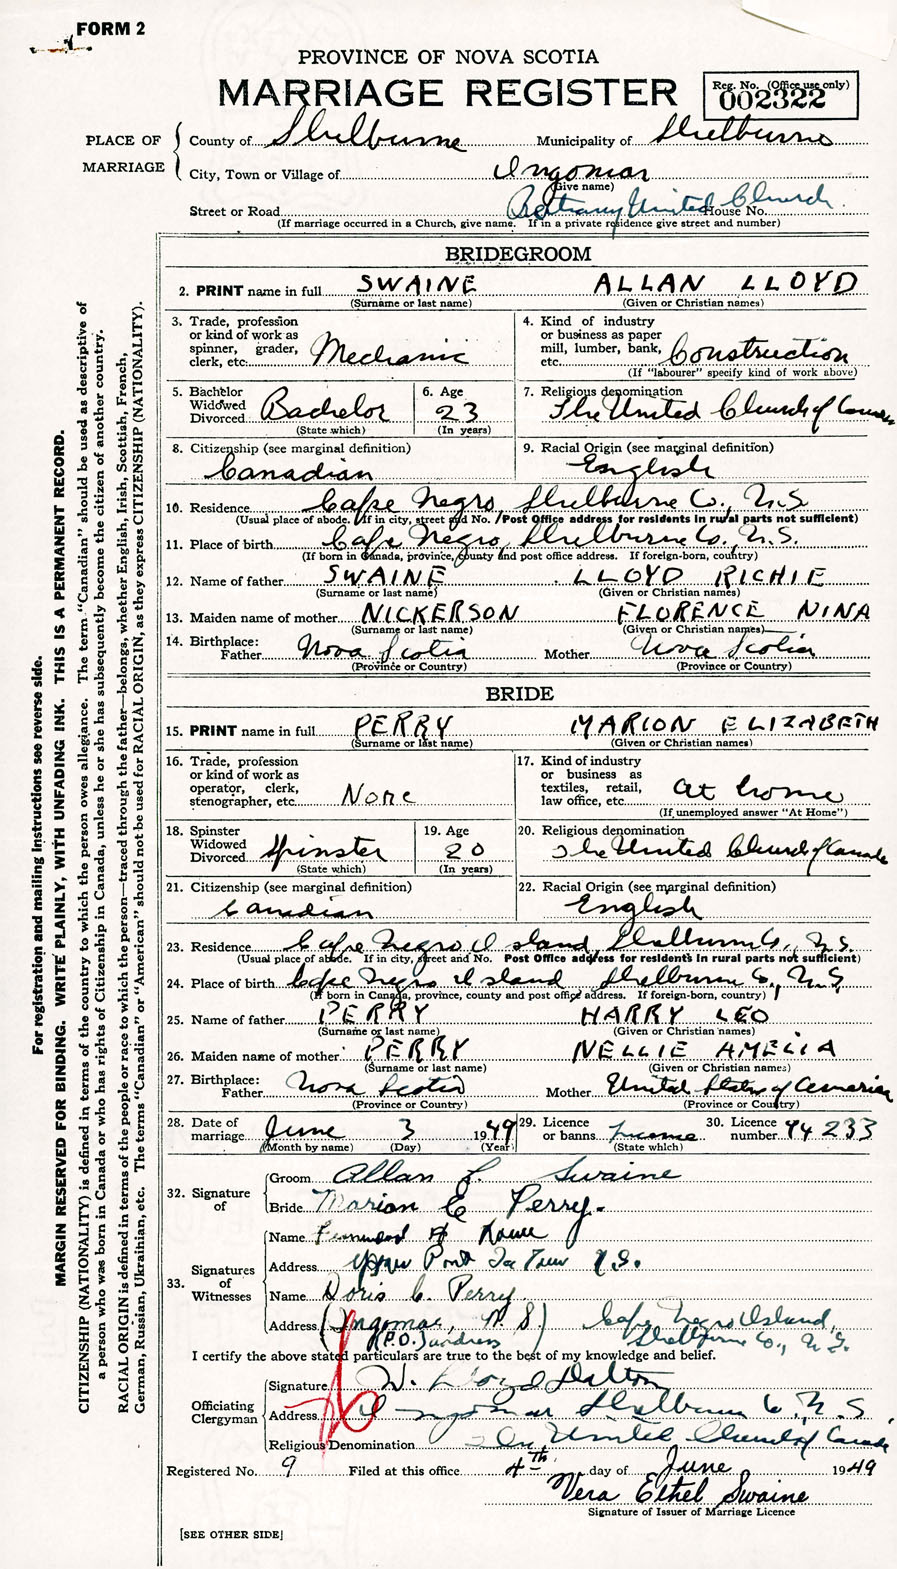 FORM 2
PROVINCE OF NOVA SCOTIA
MARRIAGE REGISTER
Reg. No. (Office use only)
002322
PLACE OF MARRIAGE
County of Shelburne Municipality of Shelburne
City, Town or Village of Ingomar
(Give name)
Street or Road Bethany United Church House No.
(If marriage occurred in a Church, give name. If in a private residence give street and number)
BRIDEGROOM
2. PRINT name in full SWAINE ALLAN LLOYD
(Surname or last name) (Given or Christian names)
3. Trade, profession or kind of work as spinner, grader, clerk, etc. Mechanic
4. Kind of industry or business as paper mill, lumber, bank, etc. Construction
(If "labourer" specify kind of work above)
5. Bachelor Widowed Divorced Bachelor
(State which)
6. Age 23
(In years)
7. Religious denomination
The United Church of Canada
8. Citizenship (see marginal definition)
Canadian
9. Racial Origin (see marginal definition)
English
10. Residence Cape Negro, Shelburne Co., N.S.
(Usual place of abode. If in city, street and No. Post Office address for residents in rural parts not sufficient)
11. Place of birth Cape Negro, Shelburne Co., N.S.
(If born in Canada, province, county and post office address. If foreign-born, country)
12. Name of father SWAINE LLOYD RICHIE
(Surname or last name) (Given or Christian names)
13. Maiden name of mother NICKERSON FLORENCE NINA
(Surname or last name) (Given or Christian names)
14. Birthplace: Father Nova Scotia Mother Nova Scotia
(Province or Country) (Province or Country)
BRIDE
15. PRINT name in full PERRY MARION ELIZABETH
(Surname or last name) (Given or Christian names)
16. Trade, profession or kind of work as operator, clerk, stenographer, etc. None
17. Kind of industry or business as textiles, retail, law office, etc. at home
(If unemployed answer "At Home")
18. Spinster Widowed Divorced Spinster
(State which)
19. Age 20
(In years)
20. Religious denomination
The United Church of Canada
21. Citizenship (see marginal definition)
Canadian
22. Racial Origin (see marginal definition)
English
23. Residence Cape Negro Island, Shelburne Co., N.S.
(Usual place of abode. If in city, street and No. Post Office address for residents in rural parts not sufficient)
24. Place of birth Cape Negro Island Shelburne Co., N.S.
(If born in Canada, province, county and post office address. If foreign-born, country)
25. Name of father PERRY HARRY LEO
(Surname or last name) (Given or Christian names)
26. Maiden name of mother PERRY NELLIE AMELIA
(Surname or last name) (Given or Christian names)
27. Birthplace: Father Nova Scotia Mother United States of America
(Province or Country) (Province or Country)
28. Date of marriage June 3 1949
(Month by name) (Day) (Year)
29. Licence or banns License
(State which)
30. Licence number 94233
32. Signature of
Groom Allan L. Swaine
Bride Marion E Perry.
33. Signatures of Witnesses
Name H
Address Upper Port La Tour N.S.
Name Doris C. Perry
Address (Ingomar, N.S.) Cape Negro Island,
(P.O.) address Shelburne Co., N.S.
I certify the above stated particulars are true to the best of my knowledge and belief.
Officiating Clergyman
Signature W. Lloyd Dalton
Address Ingomar Shelburne Co., N.S.
Religious Denomination The United Church of Canada
Registered No. 9 Filed at this office 4th day of June 1949
Vera Ethel Swaine
Signature of Issuer of Marriage Licence
[SEE OTHER SIDE]
For registration and mailing instructions see reverse side.
MARGIN RESERVED FOR BINDING. WRITE PLAINLY, WITH UNFADING INK. THIS IS A PERMANENT RECORD.
CITIZENSHIP (NATIONALITY) is defined in terms of the country to which the person owes allegiance. The term "Canadian" should be used as descriptive of
a person who was born in Canada or who has rights of Citizenship in Canada, unless he or she has subsequently become the citizen of another country.
RACIAL ORIGIN is defined in terms of the people or race to which the person—traced through the father—belongs, whether English, Irish, Scottish, French,
German, Russian, Ukrainian, etc. The terms "Canadian" or "American" should not be used for RACIAL ORIGIN, as they express CITIZENSHIP (NATIONALITY).